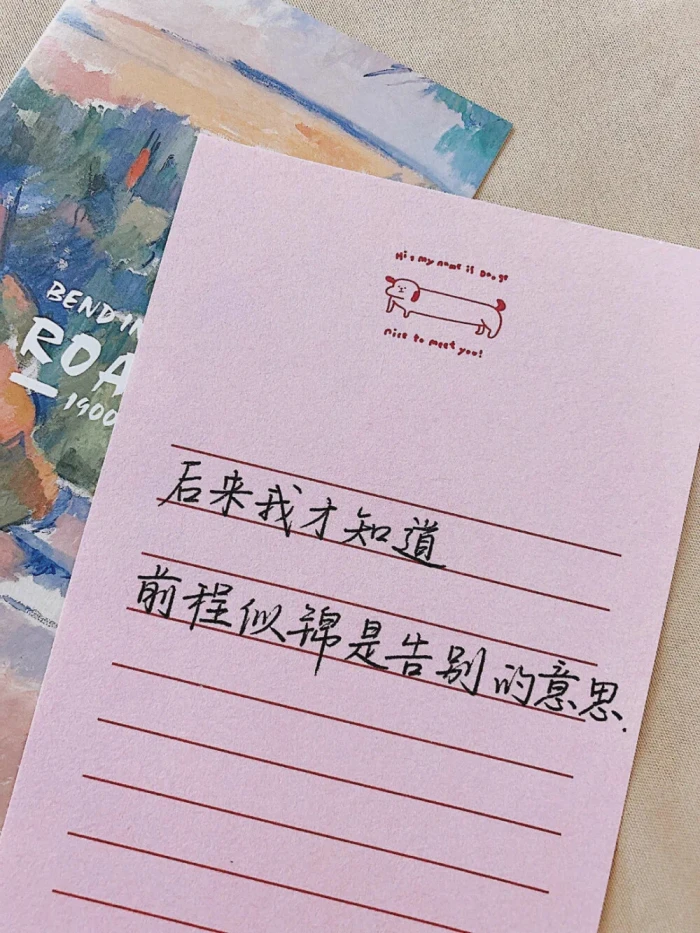 BENDIN
ROA
1900
Hi, my name is Doogo
nice to meet you!
后来我才知道
前程似锦是告别的意思.